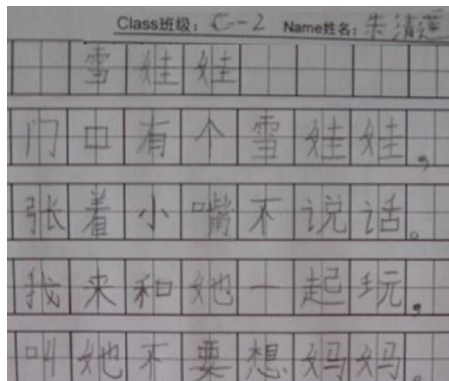 Class班级: C-2 Name姓名: 朱清莲
雪娃娃
门中有个雪娃娃,
张着小嘴不说话。
我来和她一起玩,
叫她不要想妈妈。